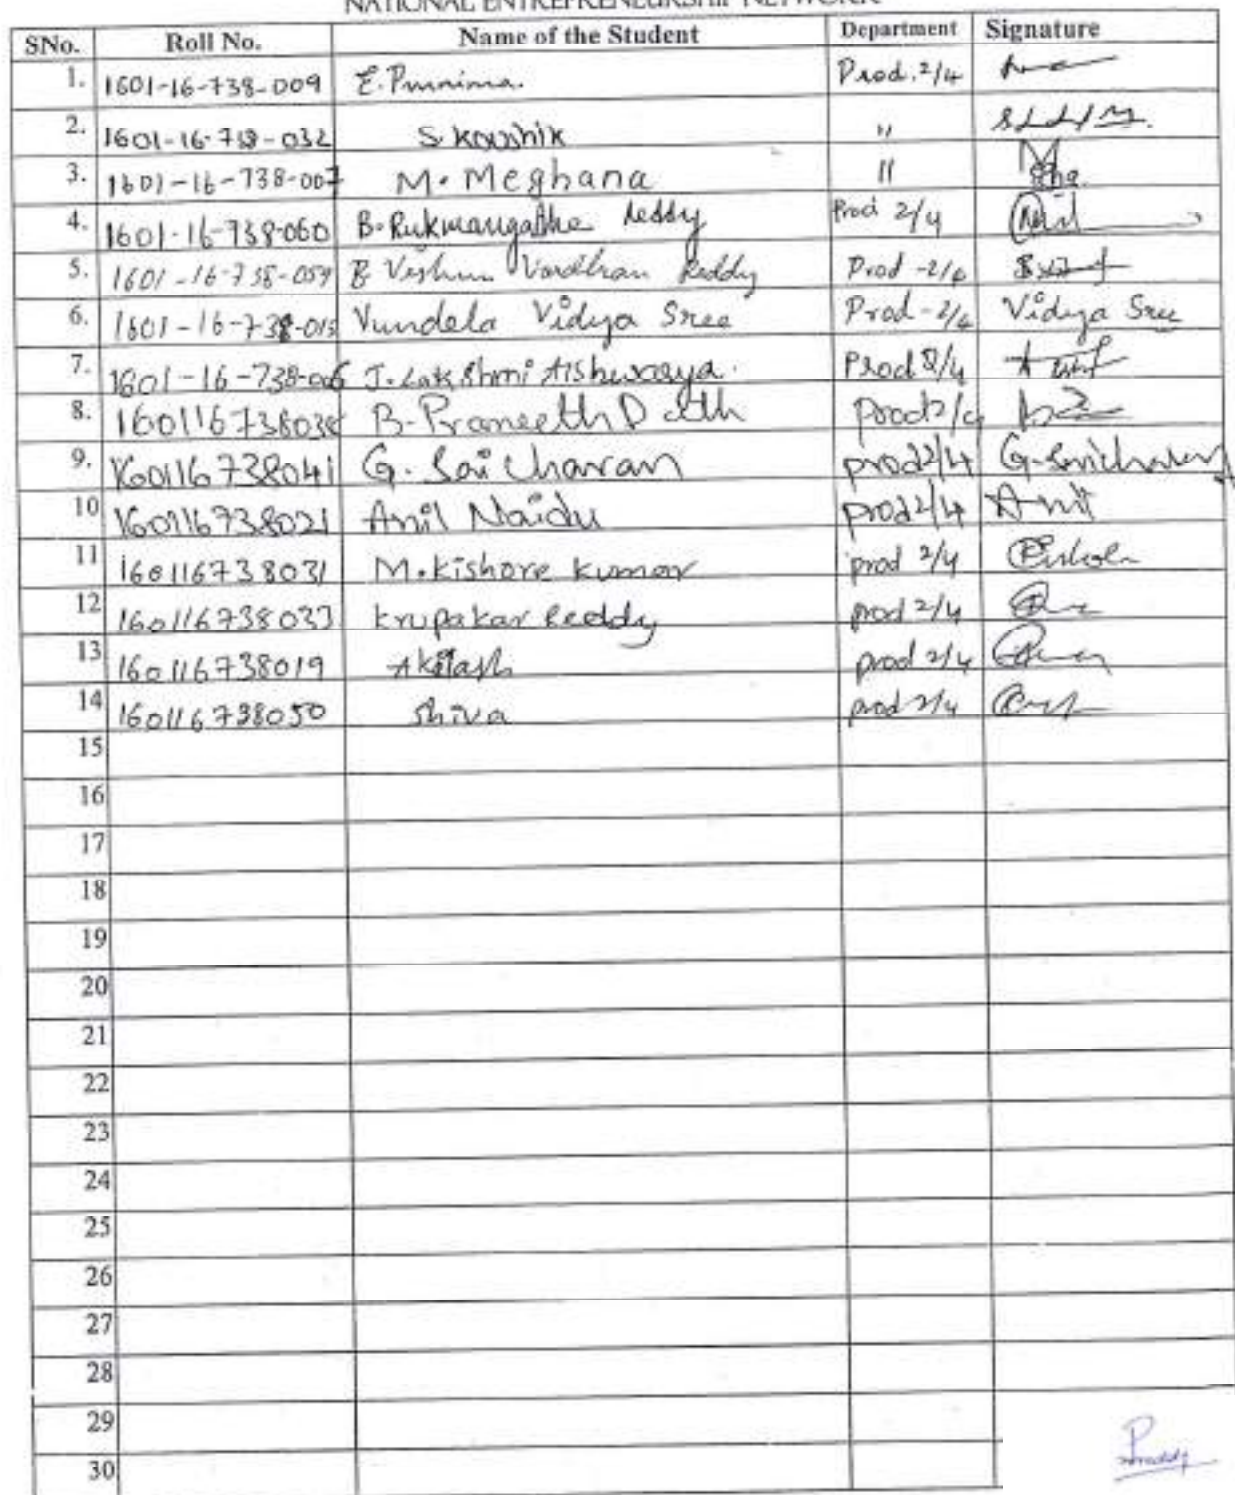 NATIONAL ENTREPRENEURSHIP NETWORK
SNo. Roll No. Name of the Student Department Signature
1. 1601-16-738-009 E. Purnima. Prod. 2/4
2. 1601-16-738-032 S. Koushik "
3. 1601-16-738-007 M. Meghana "
4. 1601-16-738-060 B. Rukmangatha Reddy Prod 2/4
5. 1601-16-738-059 B Vishnu Vardhan Reddy Prod -2/4
6. 1601-16-738-015 Vundela Vidya Sree Prod-2/4 Vidya Sree
7. 1601-16-738-006 J. Lakshmi Aishwarya. Prod 2/4
8. 160116738038 B. Praneeth Dath prod 2/4
9. 160116738041 G. Sai Charan prod 2/4 G. Saicharan
10 160116738021 Anil Naidu prod 2/4 Anil
11 160116738031 M. Kishore Kumar prod 2/4
12 160116738033 Krupakar Reddy prod 2/4
13 160116738019 Akilash prod 2/4
14 160116738050 Shiva prod 2/4
15
16
17
18
19
20
21
22
23
24
25
26
27
28
29
30